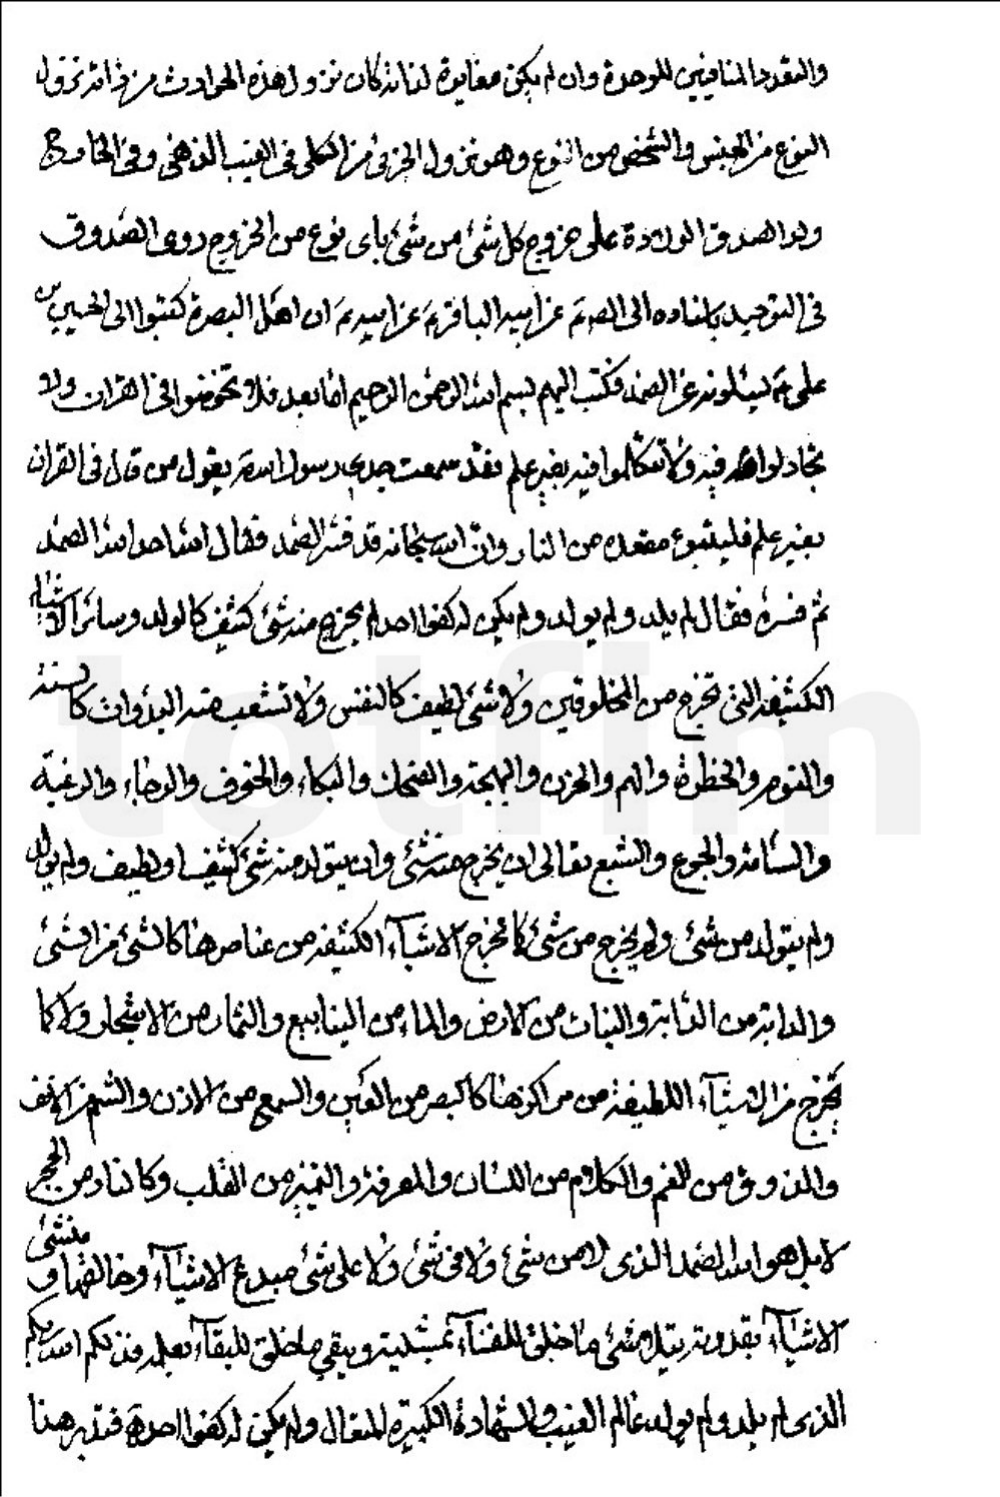 والتعدد المنافيين للوحدة وان لم يكن مغايرة لذاته كان نزول هذه الحوادث من ذاته نزول
النوع من الجنس والشخص من النوع وهو نزول الجزئي من الكلي في الغيب الذهني وفي الخارجي
ولو الصدق الولادة على خروج كل شئ من شئ باي نوع من الخروج روى الصدوق
في التوحيد باسناده الى الصم عن ابيه الباقر عم عن ابيه عم ان اهل البصرة كتبوا الى الحسين بن
على عم يسئلونه عن الصمد فكتب اليهم بسم الله الرحمن الرحيم اما بعد فلا تخوضوا في القران ولا
تجادلوا فيه ولا تتكلموا فيه بغير علم فقد سمعت جدي رسول الله ص يقول من قال في القران
بغير علم فليتبوء مقعده من النار وان الله سبحانه قد فسر الصمد فقال الله احد الله الصمد
ثم فسره فقال لم يلد ولم يولد ولم يكن له كفوا احد لم يخرج منه شئ كثيف كالولد وسائر الاشياء
الكثيفة التي تخرج من المخلوقين ولا شئ لطيف كالنفس ولا تتشعب منه البدوات كالسنة
والنوم والخطرة والهم والحزن والبهجة والضحك والبكاء والخوف والرجاء والرغبة
والسآمة والجوع والشبع تعالى ان يخرج منه شئ وان يتولد منه شئ كثيف او لطيف ولم يولد
ولم يتولد من شئ ولم يخرج من شئ كما تخرج الاشيآء الكثيفة من عناصرها كالشئ من الشئ
والدابة من الدابة والنبات من الارض والماء من الينابيع والثمار من الاشجار ولا كما
تخرج من الاشيآء اللطيفة من مراكزها كالبصر من العين والسمع من الاذن والشم من الانف
والذوق من الفم والكلام من اللسان والمعرفة والتميز من القلب وكالنار من الحجر
لا بل هو الله الصمد الذي لا من شئ ولا في شئ ولا على شئ مبدع الاشيآء وخالقها ومنشئ
الاشيآء بقدرته يتلاشى ما خلق للفنآء بمشيته ويبقى ما خلق للبقآء بعلمه فذلكم الله ربكم
الذي لم يلد ولم يولد عالم الغيب والشهادة الكبير المتعال ولم يكن له كفوا احد فتدبر هذا